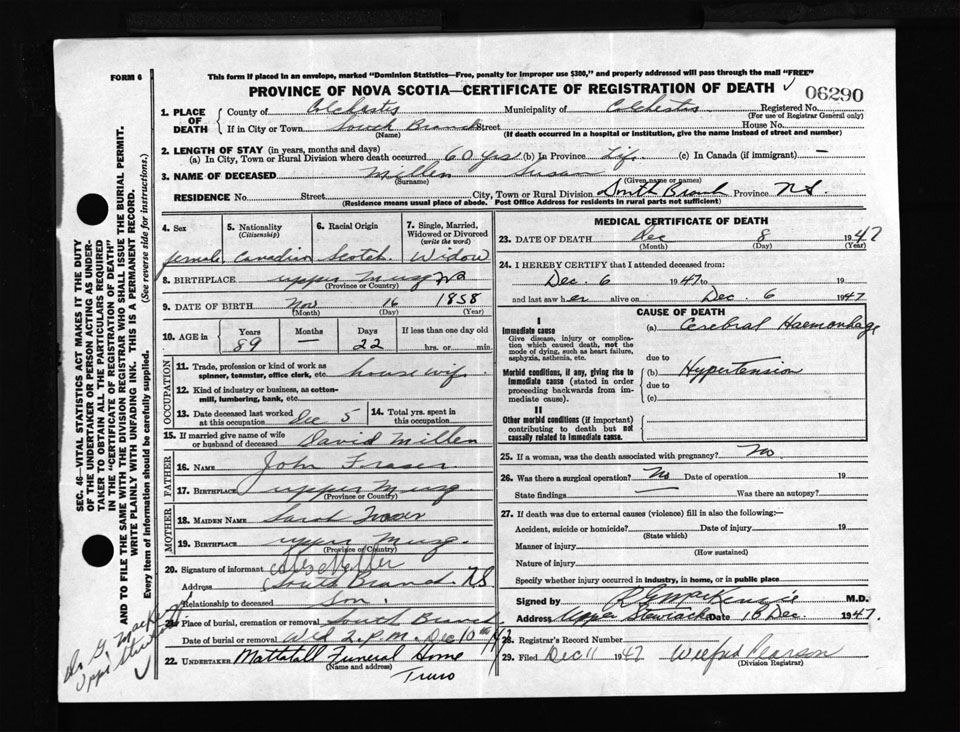 FORM 6
This form if placed in an envelope, marked "Dominion Statistics—Free, penalty for improper use $300," and properly addressed will pass through the mail "FREE"
PROVINCE OF NOVA SCOTIA—CERTIFICATE OF REGISTRATION OF DEATH 06290
1. PLACE OF DEATH
County of Colchester Municipality of Colchester Registered No.
(For use of Registrar General only)
If in City or Town South Branch Street House No.
(Name) (If death occurred in a hospital or institution, give the name instead of street and number)
2. LENGTH OF STAY (in years, months and days)
(a) In City, Town or Rural Division where death occurred 60 yrs (b) In Province Life (c) In Canada (if immigrant) —
3. NAME OF DECEASED Millen Susan
(Surname) (Given name or names)
RESIDENCE No. Street City, Town or Rural Division South Branch Province NS
(Residence means usual place of abode. Post Office Address for residents in rural parts not sufficient)
4. Sex female
5. Nationality (Citizenship) Canadian
6. Racial Origin Scotch
7. Single, Married, Widowed or Divorced (write the word) Widow
8. BIRTHPLACE upper Musq NS
(Province or Country)
9. DATE OF BIRTH Nov 16 1858
(Month) (Day) (Year)
10. AGE in Years 89 Months — Days 22 If less than one day old hrs. or min.
OCCUPATION
11. Trade, profession or kind of work as spinner, teamster, office clerk, etc. house wife
12. Kind of industry or business, as cotton-mill, lumbering, bank, etc.
13. Date deceased last worked at this occupation Dec 5
14. Total yrs. spent in this occupation
15. If married give name of wife or husband of deceased David Millen
FATHER
16. NAME John Fraser
17. BIRTHPLACE upper Musq
(Province or Country)
MOTHER
18. MAIDEN NAME Sarah
19. BIRTHPLACE upper Musq.
(Province or Country)
20. Signature of informant
Address South Branch NS
Relationship to deceased Son.
21. Place of burial, cremation or removal South Branch
Date of burial or removal Wed 2.P.M. Dec 10th 47
22. UNDERTAKER Mattatall Funeral Home
(Name and address)
Truro
MEDICAL CERTIFICATE OF DEATH
23. DATE OF DEATH Dec 8 1947
(Month) (Day) (Year)
24. I HEREBY CERTIFY that I attended deceased from:
Dec. 6 1947 to 19
and last saw her alive on Dec. 6 1947
CAUSE OF DEATH
I
Immediate cause
Give disease, injury or complication which caused death, not the mode of dying, such as heart failure, asphyxia, asthenia, etc.
(a) Cerebral Haemorrhage
due to
Morbid conditions, if any, giving rise to immediate cause (stated in order proceeding backwards from immediate cause).
(b) Hypertension
due to
(c)
II
Other morbid conditions (if important) contributing to death but not causally related to immediate cause.
25. If a woman, was the death associated with pregnancy? No
26. Was there a surgical operation? No Date of operation 19
State findings — Was there an autopsy?
27. If death was due to external causes (violence) fill in also the following:—
Accident, suicide or homicide? Date of injury 19
(State which)
Manner of injury
(How sustained)
Nature of injury
Specify whether injury occurred in industry, in home, or in public place
Signed by MacKenzie M.D.
Address Upper Stewiacke Date 10 Dec. 1947.
28. Registrar's Record Number
29. Filed Dec 11 1947 Wilfred Pearson
(Division Registrar)
SEC. 46—VITAL STATISTICS ACT MAKES IT THE DUTY
OF THE UNDERTAKER OR PERSON ACTING AS UNDER-
TAKER TO OBTAIN ALL THE PARTICULARS REQUIRED
IN THE "CERTIFICATE OF REGISTRATION OF DEATH"
AND TO FILE THE SAME WITH THE DIVISION REGISTRAR WHO SHALL ISSUE THE BURIAL PERMIT.
WRITE PLAINLY WITH UNFADING INK. THIS IS A PERMANENT RECORD.
Every item of information should be carefully supplied. (See reverse side for instructions.)
Dr G. MacKenzie